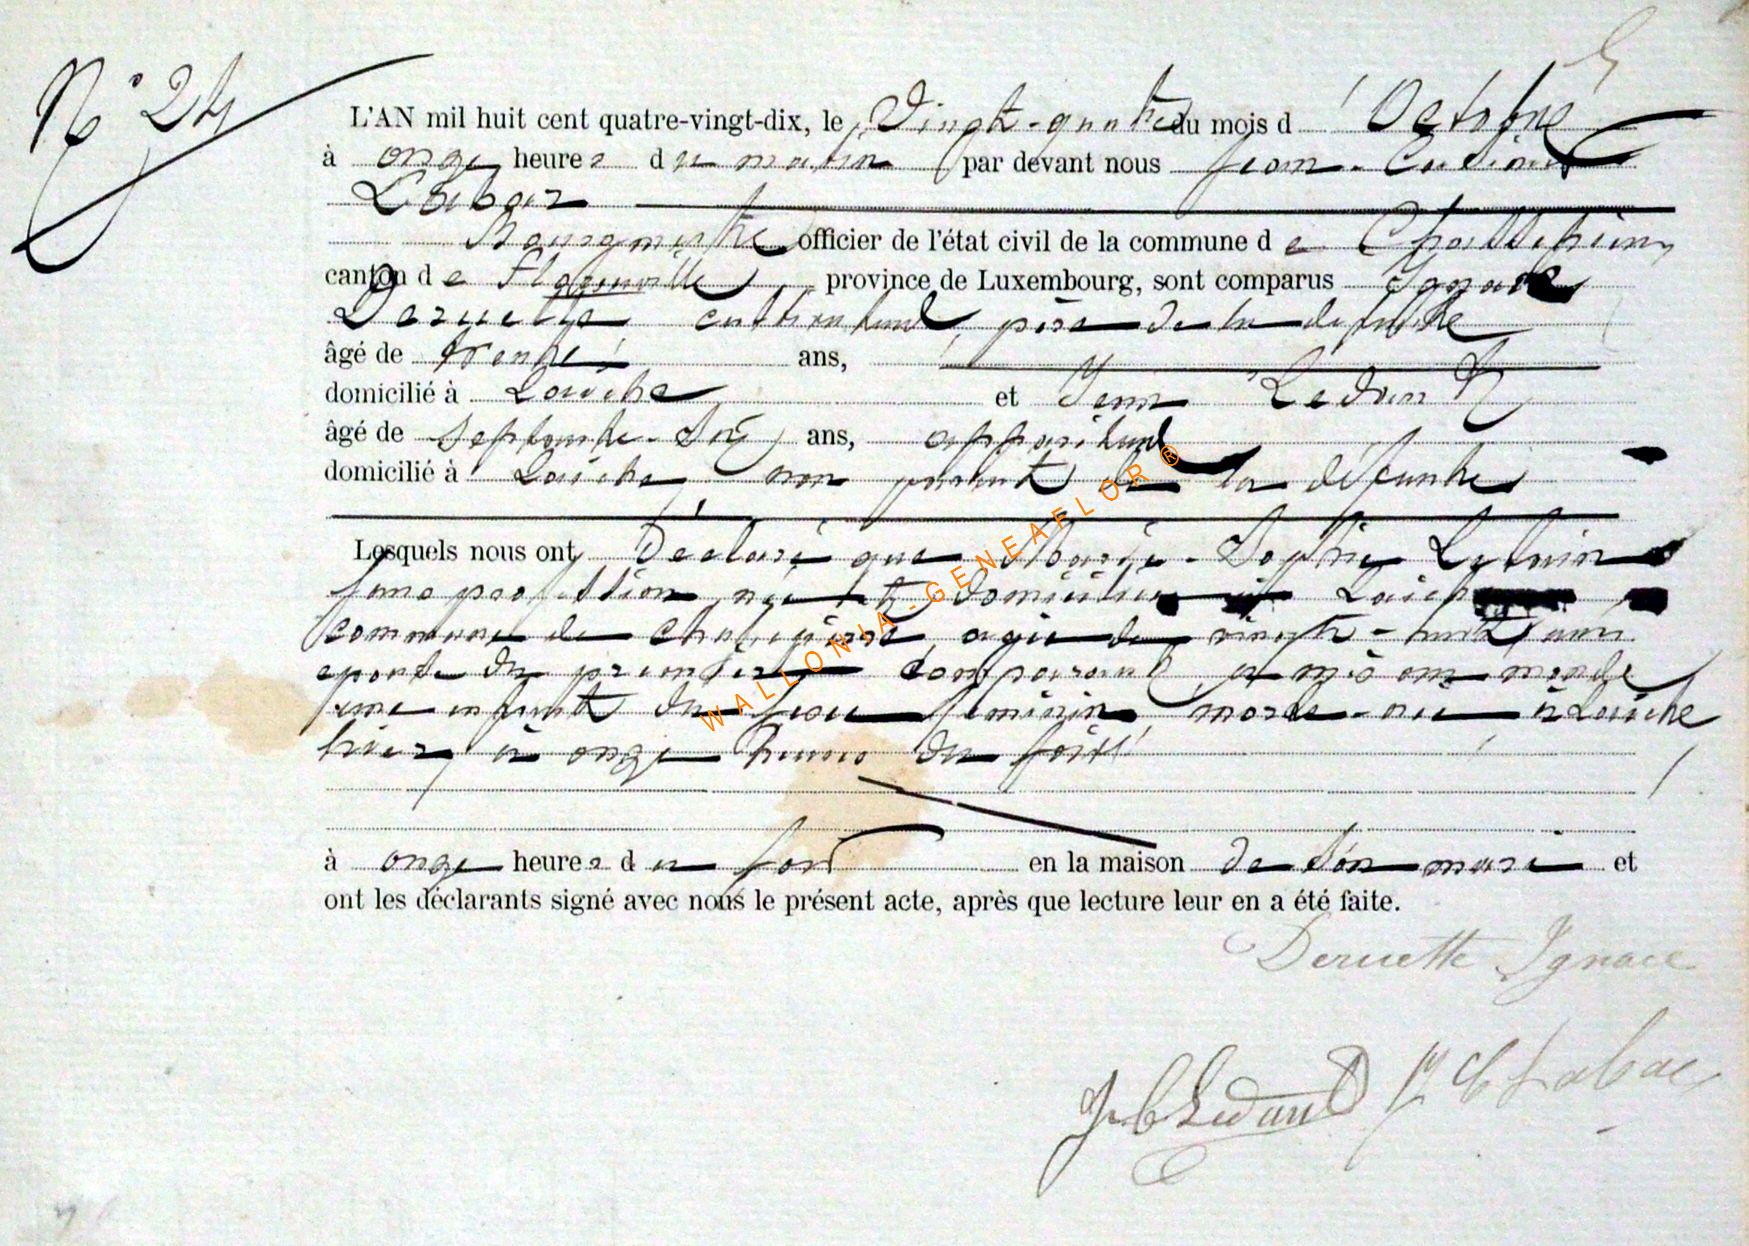 N° 24
L'AN mil huit cent quatre-vingt-dix, le Vingt-quatre du mois d' Octobre
à onze heures du matin par devant nous Jean-
Labar
Bourgmestre officier de l'état civil de la commune de Chassepierre
canton de Florenville province de Luxembourg, sont comparus Ignace
Deruette cultivateur, père de la defunte
âgé de trente ans,
domicilié à Laiche et Jean Ledan
âgé de Septante-Six ans,
domicilié à Laiche, non parent de la défunte
Lesquels nous ont Déclaré que Marie-Sophie
sans profession, née et domiciliée à Laiche
commune de Chassepierre, agée de vingt-huit ans
epouse du premier comparant, a mis au monde
une enfant du sexe féminin, morte-née à Laiche
hier, à onze heures du soir
à onze heures du soir en la maison de Son mari et
ont les déclarants signé avec nous le présent acte, après que lecture leur en a été faite.
Deruette Ignace
Labar
WALLONIA-GENEAFLOR®